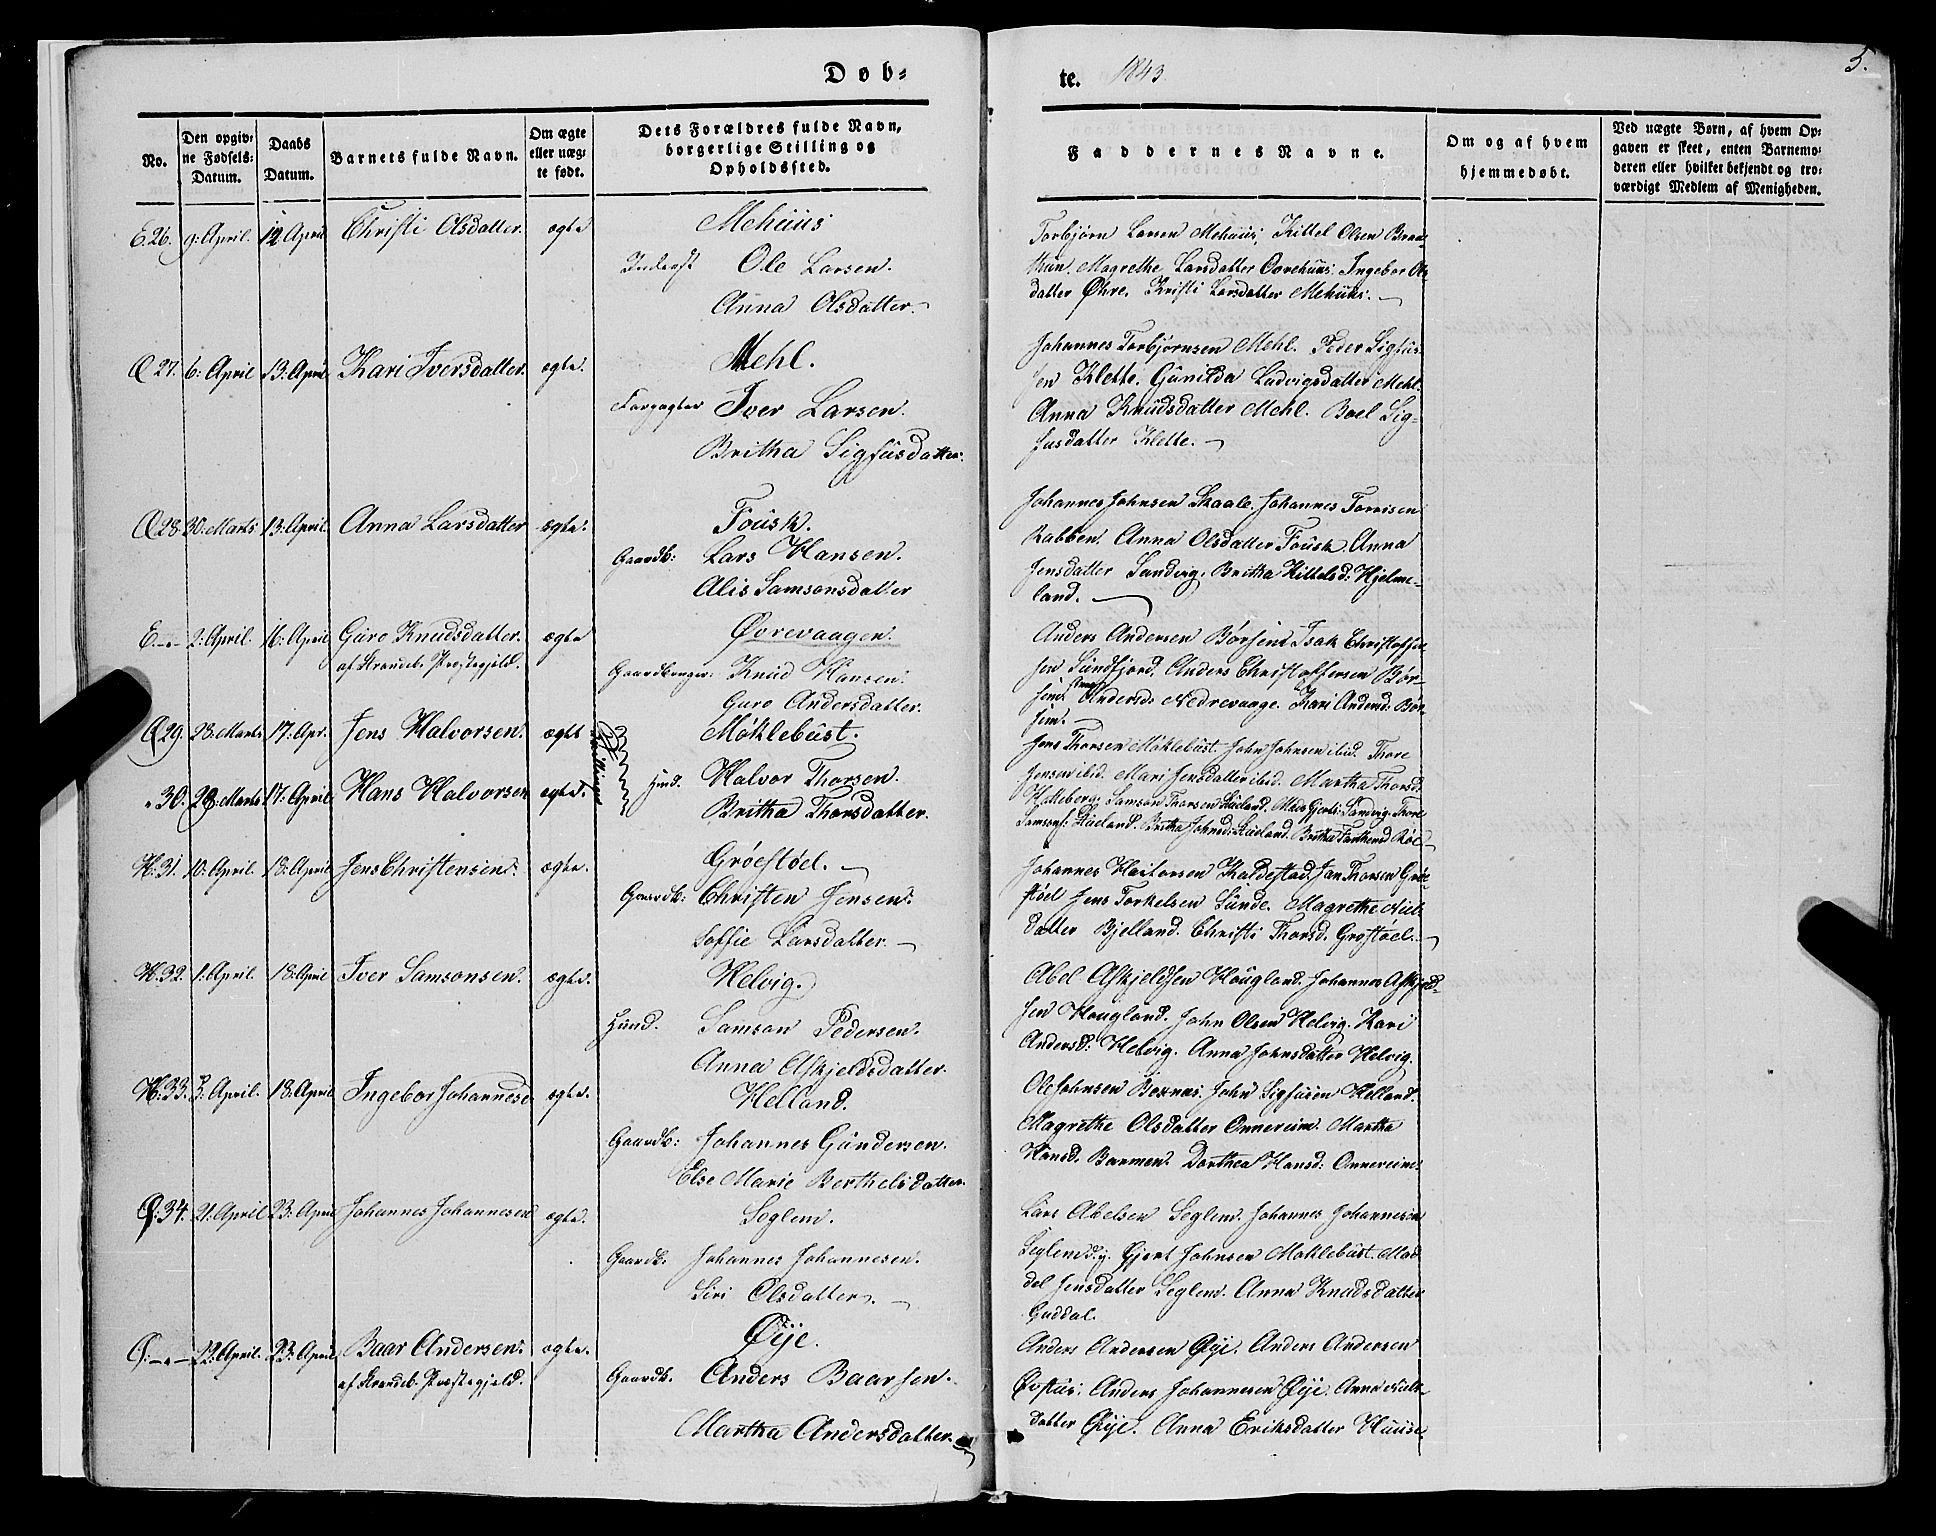 Døb=
te. 1843. 5.
No.
Den opgiv=
ne Fødsels=
Datum.
Daabs
Datum.
Barnets fulde Navn.
Om ægte
eller uæg=
te født.
Dets Forældres fulde Navn,
borgerlige Stilling og
Opholdssted.
Faddernes Navne.
Om og af hvem
hjemmedøbt.
Ved uægte Børn, af hvem Op=
gaven er skeet, enten Barnemo=
deren eller hvilket bekjendt og tro=
værdigt Medlem af Menigheden.
E.26. 9: April. 12 April Christi Olsdatter. ægte Mehuus
Inderst Ole Larsen.
Anna Olsdatter.
Torbjørn Larsen Mehuus, Kittel Olsen Braa=
thun. Magrethe Larsdatter Øvrehuus. Ingebor Ols
datter Øhre. Kristi Larsdatter Mehuus.
Q 27. 6: April 13: April Kari Iversdatter. ægte. Mehl.
Forpagter Iver Larsen.
Britha Sigfusdatter.
Johannes Torbjørnsen Mehl. Peder Sigfus
sen Klette. Gunilda Ludvigsdatter Mehl.
Anna Knudsdatter Mehl. Boel Sig=
fusdatter Klette.
Q 28. 30. Marts 13. April. Anna Larsdatter ægte. Fousk.
Gaardb: Lars Hansen.
Alis Samsonsdatter
Johannes Johnsen Skaale. Johannes Torrisen
Rabben. Anna Olsdatter Fousk. Anna
Jensdatter Sandvig. Britha Kittelsd: Hjelme=
land.
E.-"- 2: April. 16: April Guro Knudsdatter. ægte Øvrevaagen.
af Strandeb. Præstegjeld.
Gaardbruger: Knud Hansen.
Guro Andersdatter.
Anders Andersen Børsem Isak Christoffer
sen Sundfjord. Anders Christoffersen Bør=
sem. Andersd: Nedrevaage. Kari Andersd: Bør
sem.
Q 29. 28. Marts 17: Apr. Jens Halvorsen. ægte Møklebust.
"30. 28. Marts 17: April Hans Halvorsen ægte. Tvillinger Huusd. Halvor Thorsen.
Britha Thorsdatter.
Jens Thorsen Møklebust. John Johnsen ibid. Thore
Jensen ibid. Mari Jensdatter ibid. Martha Thorsd.
Samson Thorsen
H. 31. 10. April. 18. April Jens Christensen. ægte. Grøestøel.
Gaardb: Christen Jensen.
Soffie Larsdatter.
Johannes Kaldestad. Jan Thorsen Grøe
støel Jens Torkelsen Sunde. Magrethe Niels
datter Bjelland. Christi Thorsd. Grøstøel.
H. 32. 1. April. 18. April Iver Samsonsen. ægte. Helvig.
Huusd. Samson Pedersen.
Anna Askjeldsdatter.
Abel Askjeldsen Hougland. Johannes Askjeld=
sen Hougland. John Olsen Helvig. Kari
Andersd: Helvig. Anna Johnsdatter Helvig.
H. 33. 3. April. 18. April Ingebor Johannesd ægte. Helland.
Gaardb: Johannes Gundersen.
Else Marie Berthelsdatter.
Ole Johnsen Boxnæs. John Sigfusen Helland.
Magrethe Olsdatter Onnereim. Martha
Hansd. Barmen. Dorthea Hansd: Onnereim.
Q: 34. 21. April 23. April Johannes Johannesen ægte. Seglem.
Gaardb. Johannes Johannesen.
Siri Olsdatter.
Lars Abelsen Seglem. Johannes Johannesen
Seglem d.y. Gjert Johnsen Moklebust. Mad
del Jensdatter Seglem. Anna Knudsdatter
Guddal.
Q.-"- 22. April. 23. April Baar Andersen. ægte. Øije.
af Strandeb. Præstegjeld.
Gaardb. Anders Baarsen.
Martha Andersdatter.
Anders Andersen Øije. Anders Andersen
Øvstuus. Anders Johannesen Øije. Anna Niels
datter Øije. Anna Eriksdatter Huuse.